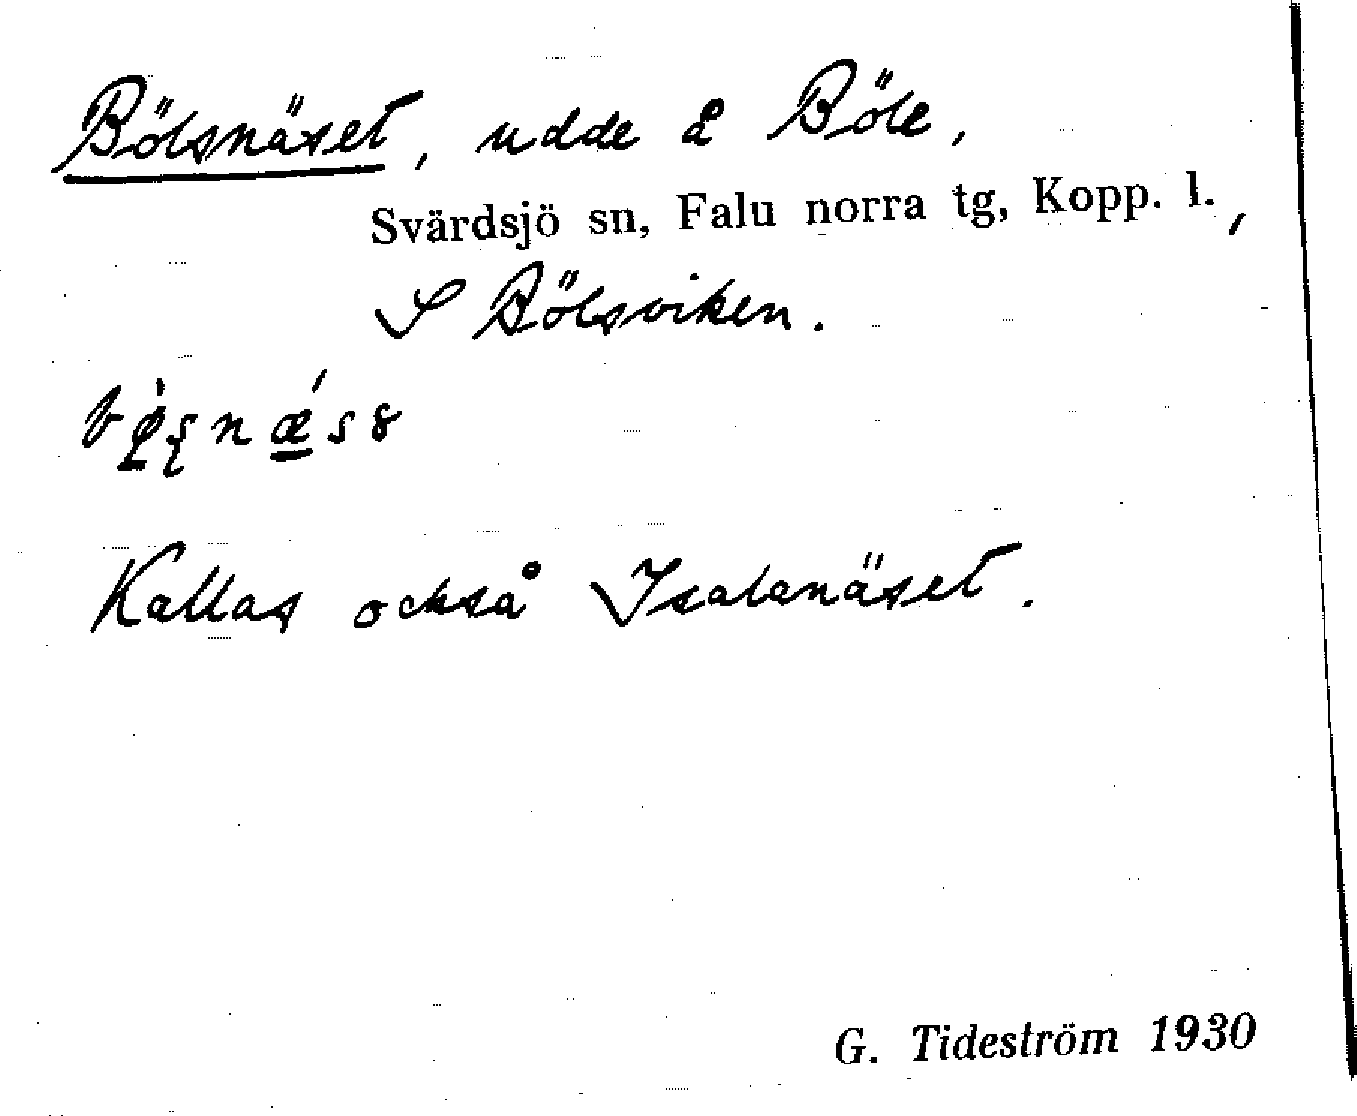 Bölsnäset, udde å Böle,
Svärdsjö sn, Falu norra tg, Kopp. l.,
S Bölsviken.
Kallas också Isalanäset.
G. Tideström 1930